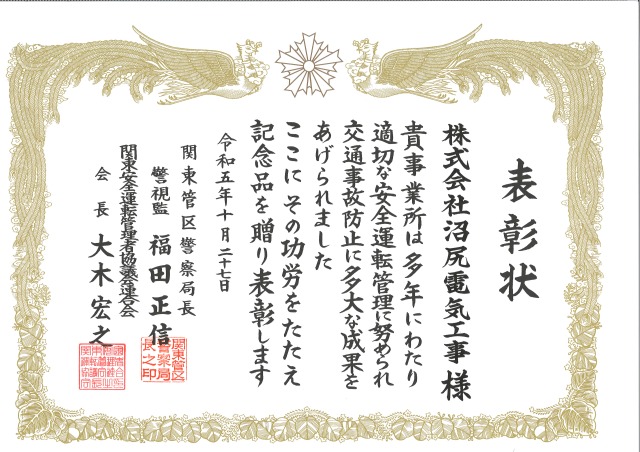 表彰状
株式会社沼尻電気工事 様
貴事業所は多年にわたり
適切な安全運転管理に努められ
交通事故防止に多大な成果を
あげられました
ここにその功労をたたえ
記念品を贈り表彰します
令和五年十月二十七日
関東管区警察局長
警視監 福田正信
関東安全運転管理者協議会連合会
会長 大木宏之
関東管区
警察局
長之印